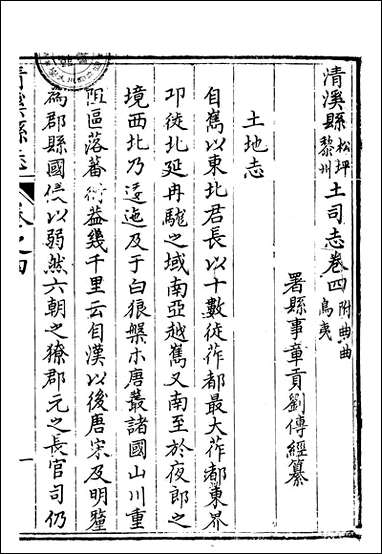 清溪縣松坪黎州土司志卷四附曲曲鳥夷
署縣事章貢劉傳經纂
土地志
自嶲以東北君長以十數徙莋都最大莋都東界
邛徙北延冉駹之域南亞越嶲又南至於夜郎之
境西北乃逶迤及于白狼槃木唐叢諸國山川重
阻區落蕃衍益幾千里云自漢以後唐宋及明釐
為郡縣國侵以弱然六朝之獠郡元之長官司仍
清溪縣志
卷之四
一